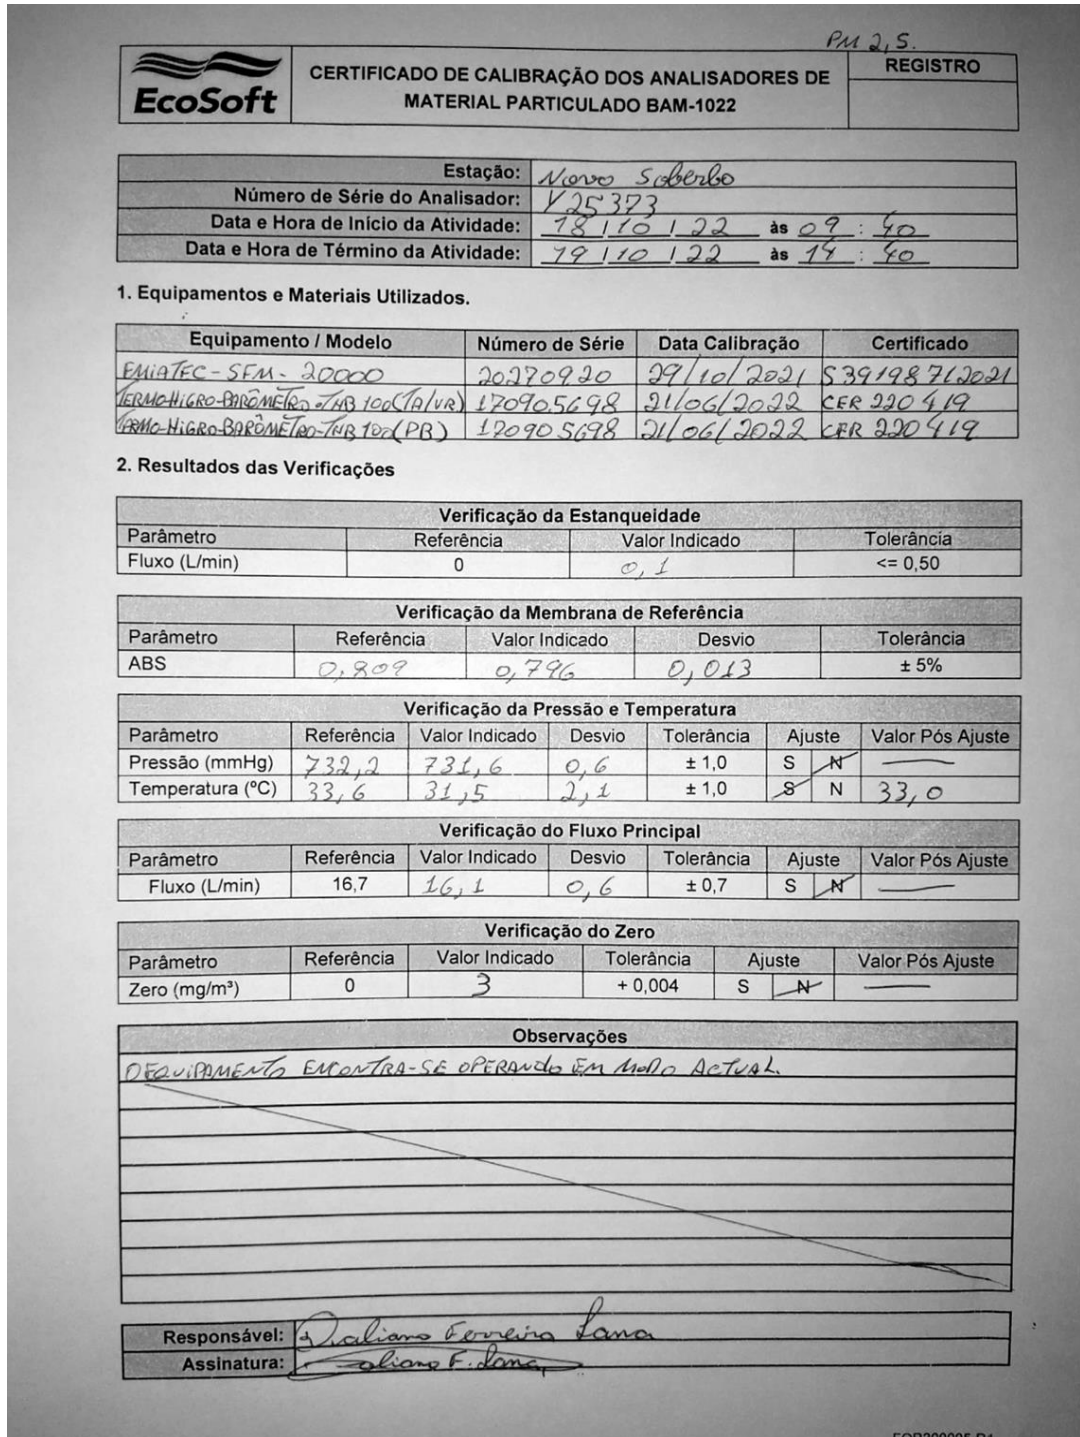 PM 2,5.
EcoSoft
CERTIFICADO DE CALIBRAÇÃO DOS ANALISADORES DE
MATERIAL PARTICULADO BAM-1022
REGISTRO
Estação: Novo Soberbo
Número de Série do Analisador: Y25373
Data e Hora de Início da Atividade: 18/10/22 às 09:40
Data e Hora de Término da Atividade: 19/10/22 às 14:40
1. Equipamentos e Materiais Utilizados.
Equipamento / Modelo Número de Série Data Calibração Certificado
EMIATEC-SFM-20000 20270920 29/10/2021 S391987/2021
TERMO-HIGRO-BARÔMETRO-THB100(TA/UR) 170905698 21/06/2022 CER 220419
TERMO-HIGRO-BARÔMETRO-THB100(PB) 170905698 21/06/2022 CER 220419
2. Resultados das Verificações
Verificação da Estanqueidade
Parâmetro Referência Valor Indicado Tolerância
Fluxo (L/min) 0 0,1 <= 0,50
Verificação da Membrana de Referência
Parâmetro Referência Valor Indicado Desvio Tolerância
ABS 0,809 0,796 0,013 ± 5%
Verificação da Pressão e Temperatura
Parâmetro Referência Valor Indicado Desvio Tolerância Ajuste Valor Pós Ajuste
Pressão (mmHg) 732,2 731,6 0,6 ± 1,0 S N
Temperatura (ºC) 33,6 31,5 2,1 ± 1,0 S N 33,0
Verificação do Fluxo Principal
Parâmetro Referência Valor Indicado Desvio Tolerância Ajuste Valor Pós Ajuste
Fluxo (L/min) 16,7 16,1 0,6 ± 0,7 S N
Verificação do Zero
Parâmetro Referência Valor Indicado Tolerância Ajuste Valor Pós Ajuste
Zero (mg/m³) 0 3 + 0,004 S N
Observações
O EQUIPAMENTO ENCONTRA-SE OPERANDO EM MODO ACTUAL.
Responsável: Daliano Ferreira Lana
Assinatura: Daliano F. Lana